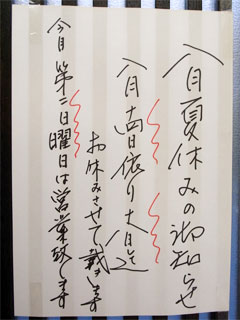 八月夏休みの御知らせ
八月十四日依り十六日迄
お休みさせて戴きます
今月第二日曜日は営業致します